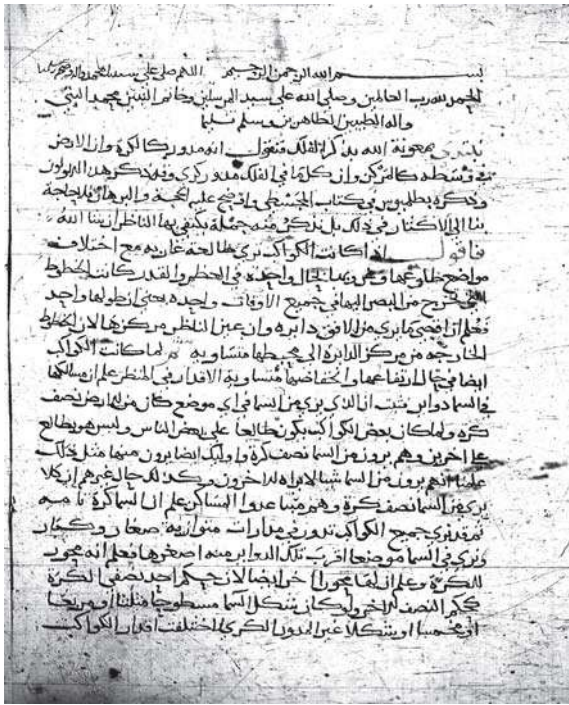 بسم الله الرحمن الرحيم اللهم صلى على سيدنا محمد واله
الحمد لله رب العالمين وصلى الله على سيد المرسلين وخاتم النبيين محمد النبي
واله الطيبين الطاهرين وسلم تسليما
نبتدى بمعونة الله بذكر الفلك فنقول انه مدور كالكرة وان الارض
في وسطه كالمركز وان كل ما في الفلك مدور كرى وقد ذكر هذا الاولون
وذكره بطلميوس في كتاب المجسطي واوضح عليه الحجة والبرهان فلا حاجة
بنا الى الاكثار في ذلك بل نذكر منه جملة يكتفي بها الناظر ان شا الله
فاقول اذا كانت الكواكب ترى طالعة غاربة مع اختلاف
مواضع طلوعها وغروبها بحال واحدة في العظم والقدر كانت الخطوط
التي تخرج من البصر اليها في جميع الاوقات واحدة يعنى ان طولها واحد
فعلم ان اقصى ما يرى من الافق دايرة وان عين الناظر مركزها لان الخطوط
الخارجة من مركز الدايرة الى محيطها متساوية ثم لما كانت الكواكب
ايضا في حال ارتفاعها وانخفاضها متساوية الاقدار في المنظر علم ان مسالكها
في السما دواير فثبت ان الذي يرى من السما في اي موضع كان من الارض نصف
كرة ولما كان بعض الكواكب يكون طالعا على بعض الناس وليس هو بطالع
على اخرين وهم يرون من السما نصف كرة واوليك ايضا يرون منها مثل ذلك
علمنا انهم يرون من السما شيا لا يراه الاخرون وكذلك حال غيرهم ان كلا
يرى من السما نصف كرة وهم متباعدوا المساكن علم ان السما كرة تامة
ثم قد نرى جميع الكواكب تدور في مدارات متوازية صغار وكبار
ونرى في السما موضعا اقرب تلك الدواير منه اصغرها فعلم انه محور
للكرة وعلم ان لها محورا اخر ايضا لان حكم احد نصفي الكرة
كحكم النصف الاخر ولو كان شكل السما مسطوحا او مثلثا او مربعا
او مخمسا او شكلا غير المدور الكرى لاختلفت اقدار الكواكب